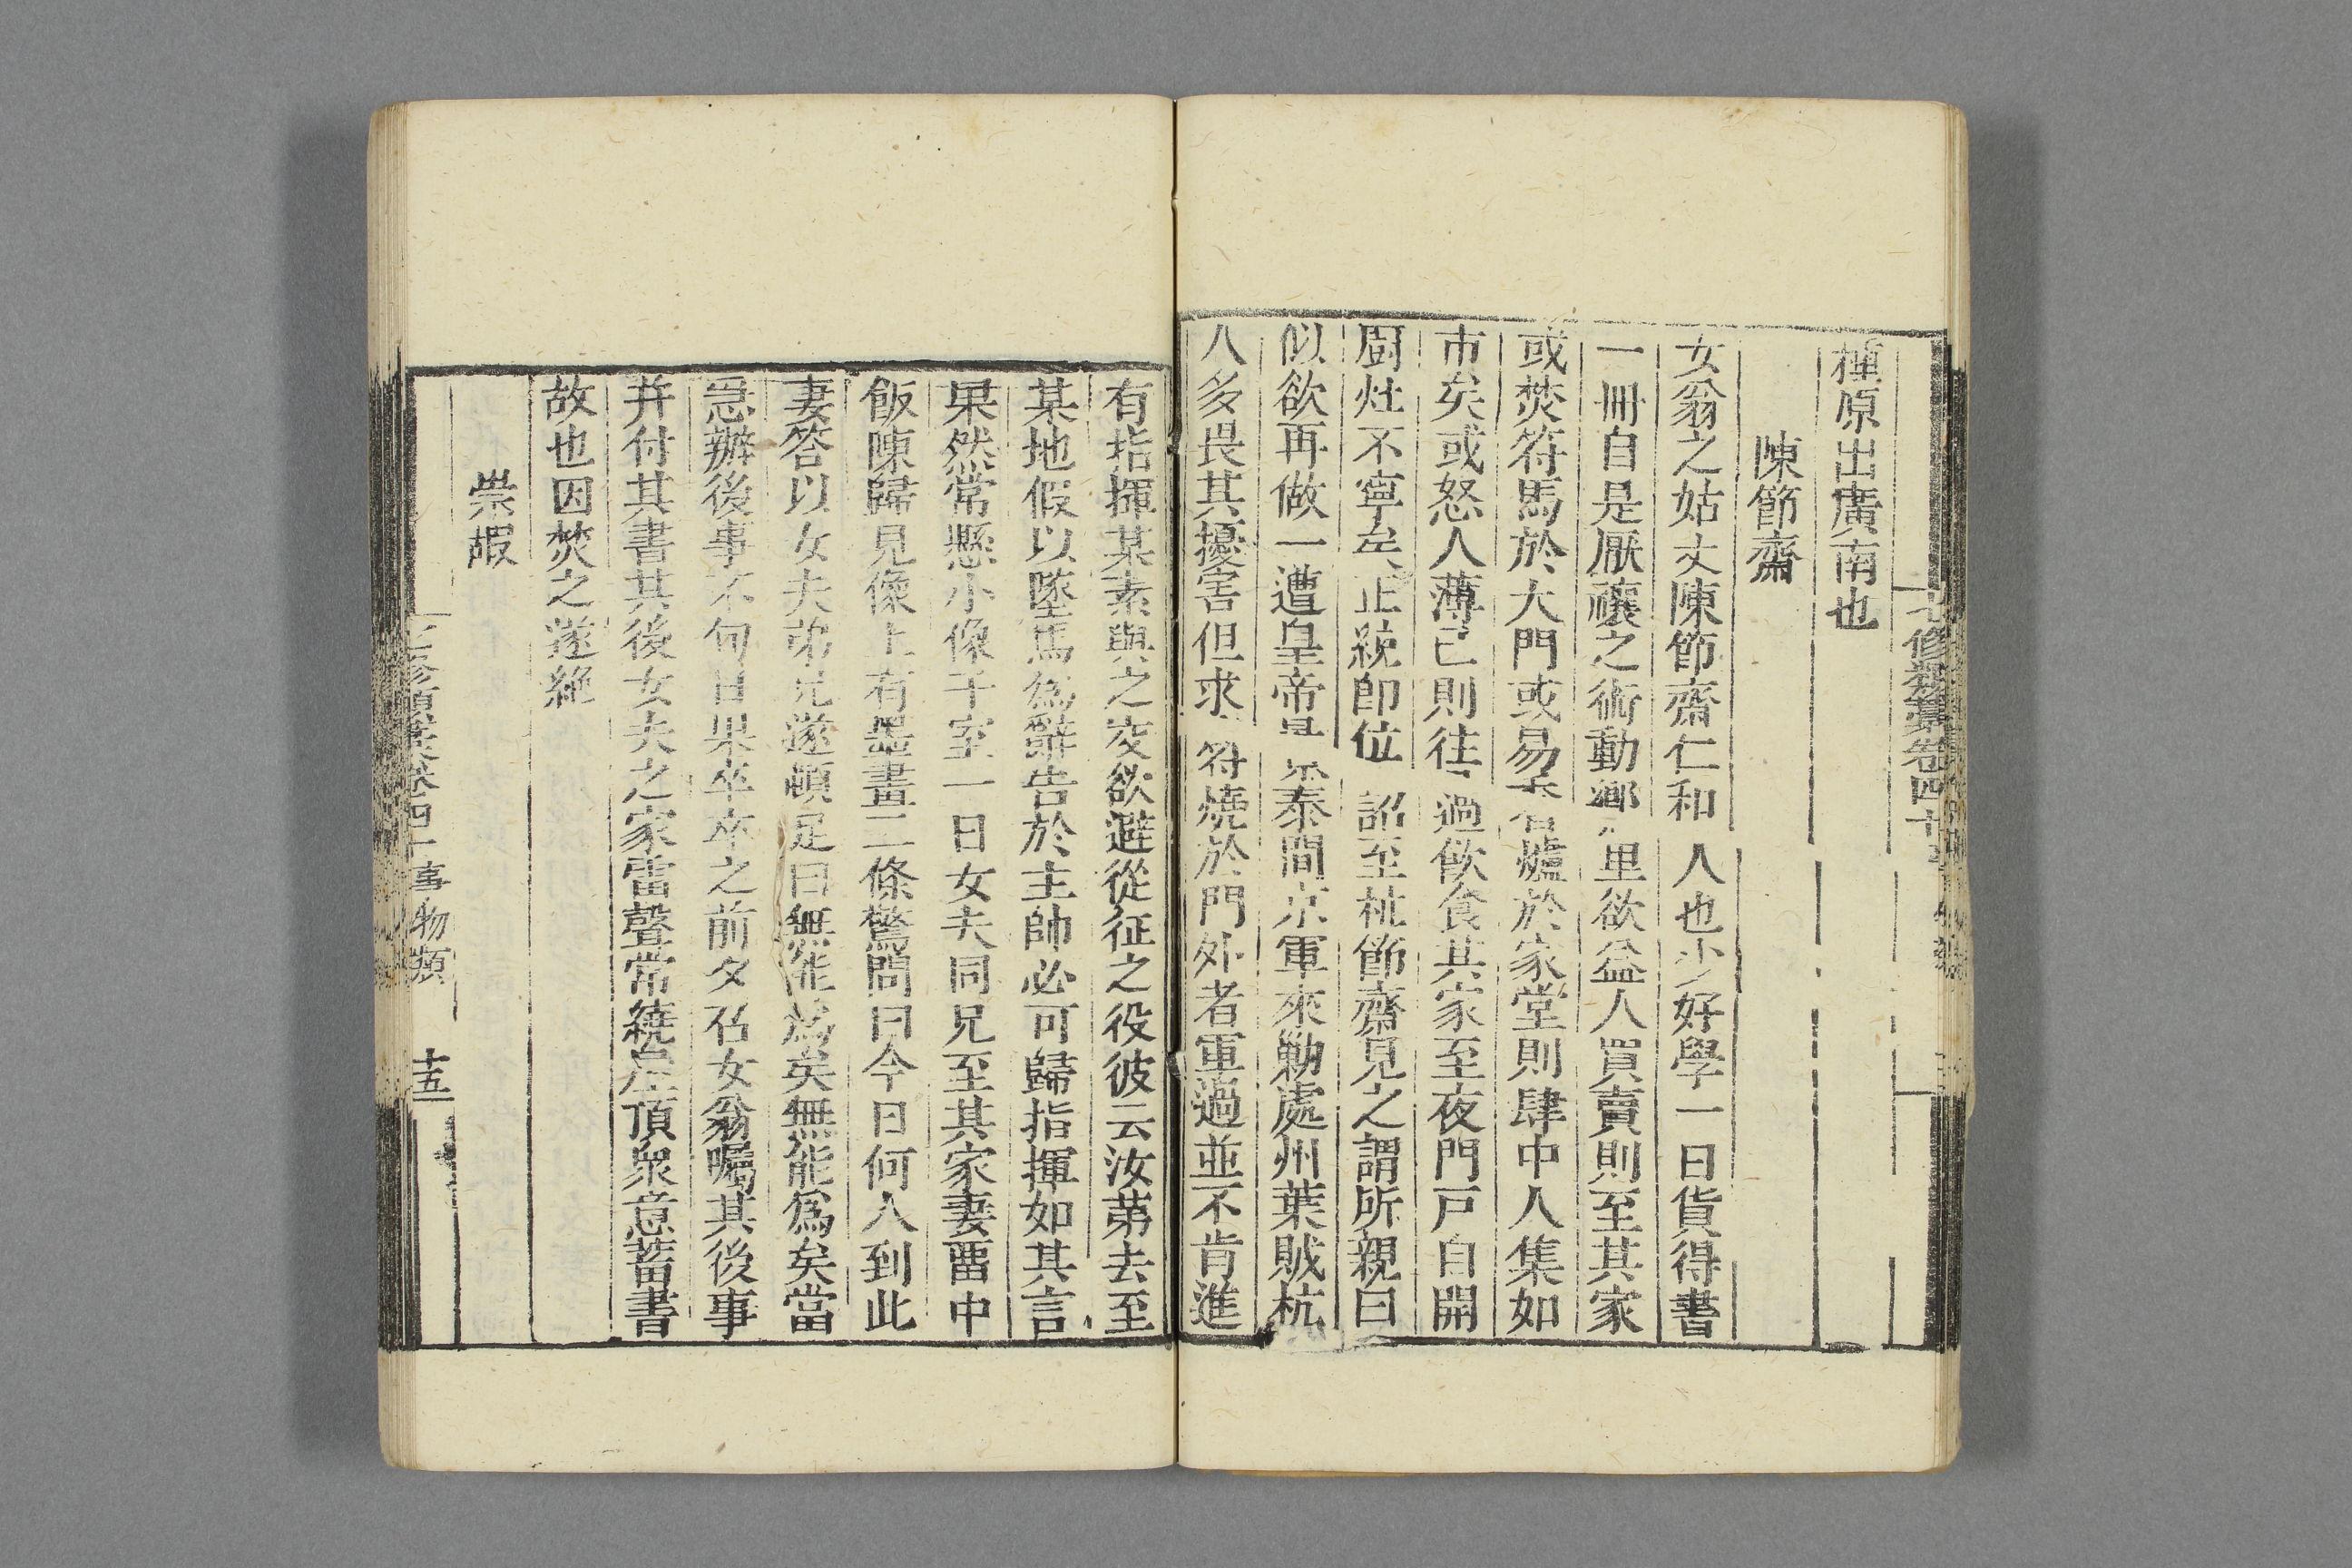 七修類藁卷四十
種原出廣南也
陳節齋
女翁之姑丈陳節齋仁和人也少好學一日貨得書
一冊自是厭禳之術動鄉里欲益人買賣則至其家
或焚符馬於大門或易香爐於家堂則肆中人集如
市矣或怒人薄己則往過飲食其家至夜門戸自開
厨灶不寧矣正統即位詔至杭節齋見之謂所親曰
似欲再做一遭皇帝景泰間京軍來勦處州葉賊杭
人多畏其擾害但求符燒於門外者軍過並不肯進
有指揮某素與之交欲避從征之役彼云汝苐去至
某地假以墜馬爲辭告於主帥必可歸指揮如其言
果然常懸小像于室一日女夫同兄至其家妻畱中
飯陳歸見像上有墨畫二條驚問曰今日何人到此
妻答以女夫弟兄遂頓足曰無能爲矣無能爲矣當
急辦後事不旬日果卒卒之前夕召女翁囑其後事
并付其書其後女夫之家雷聲常繞屋頂衆意蓄書
故也因焚之遂絶
祟嘏
七修類藁卷四十 事物類 十五